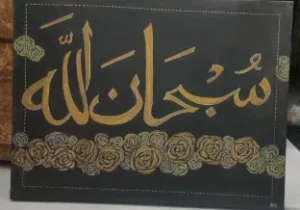 سُبْحَانَ اللَّه